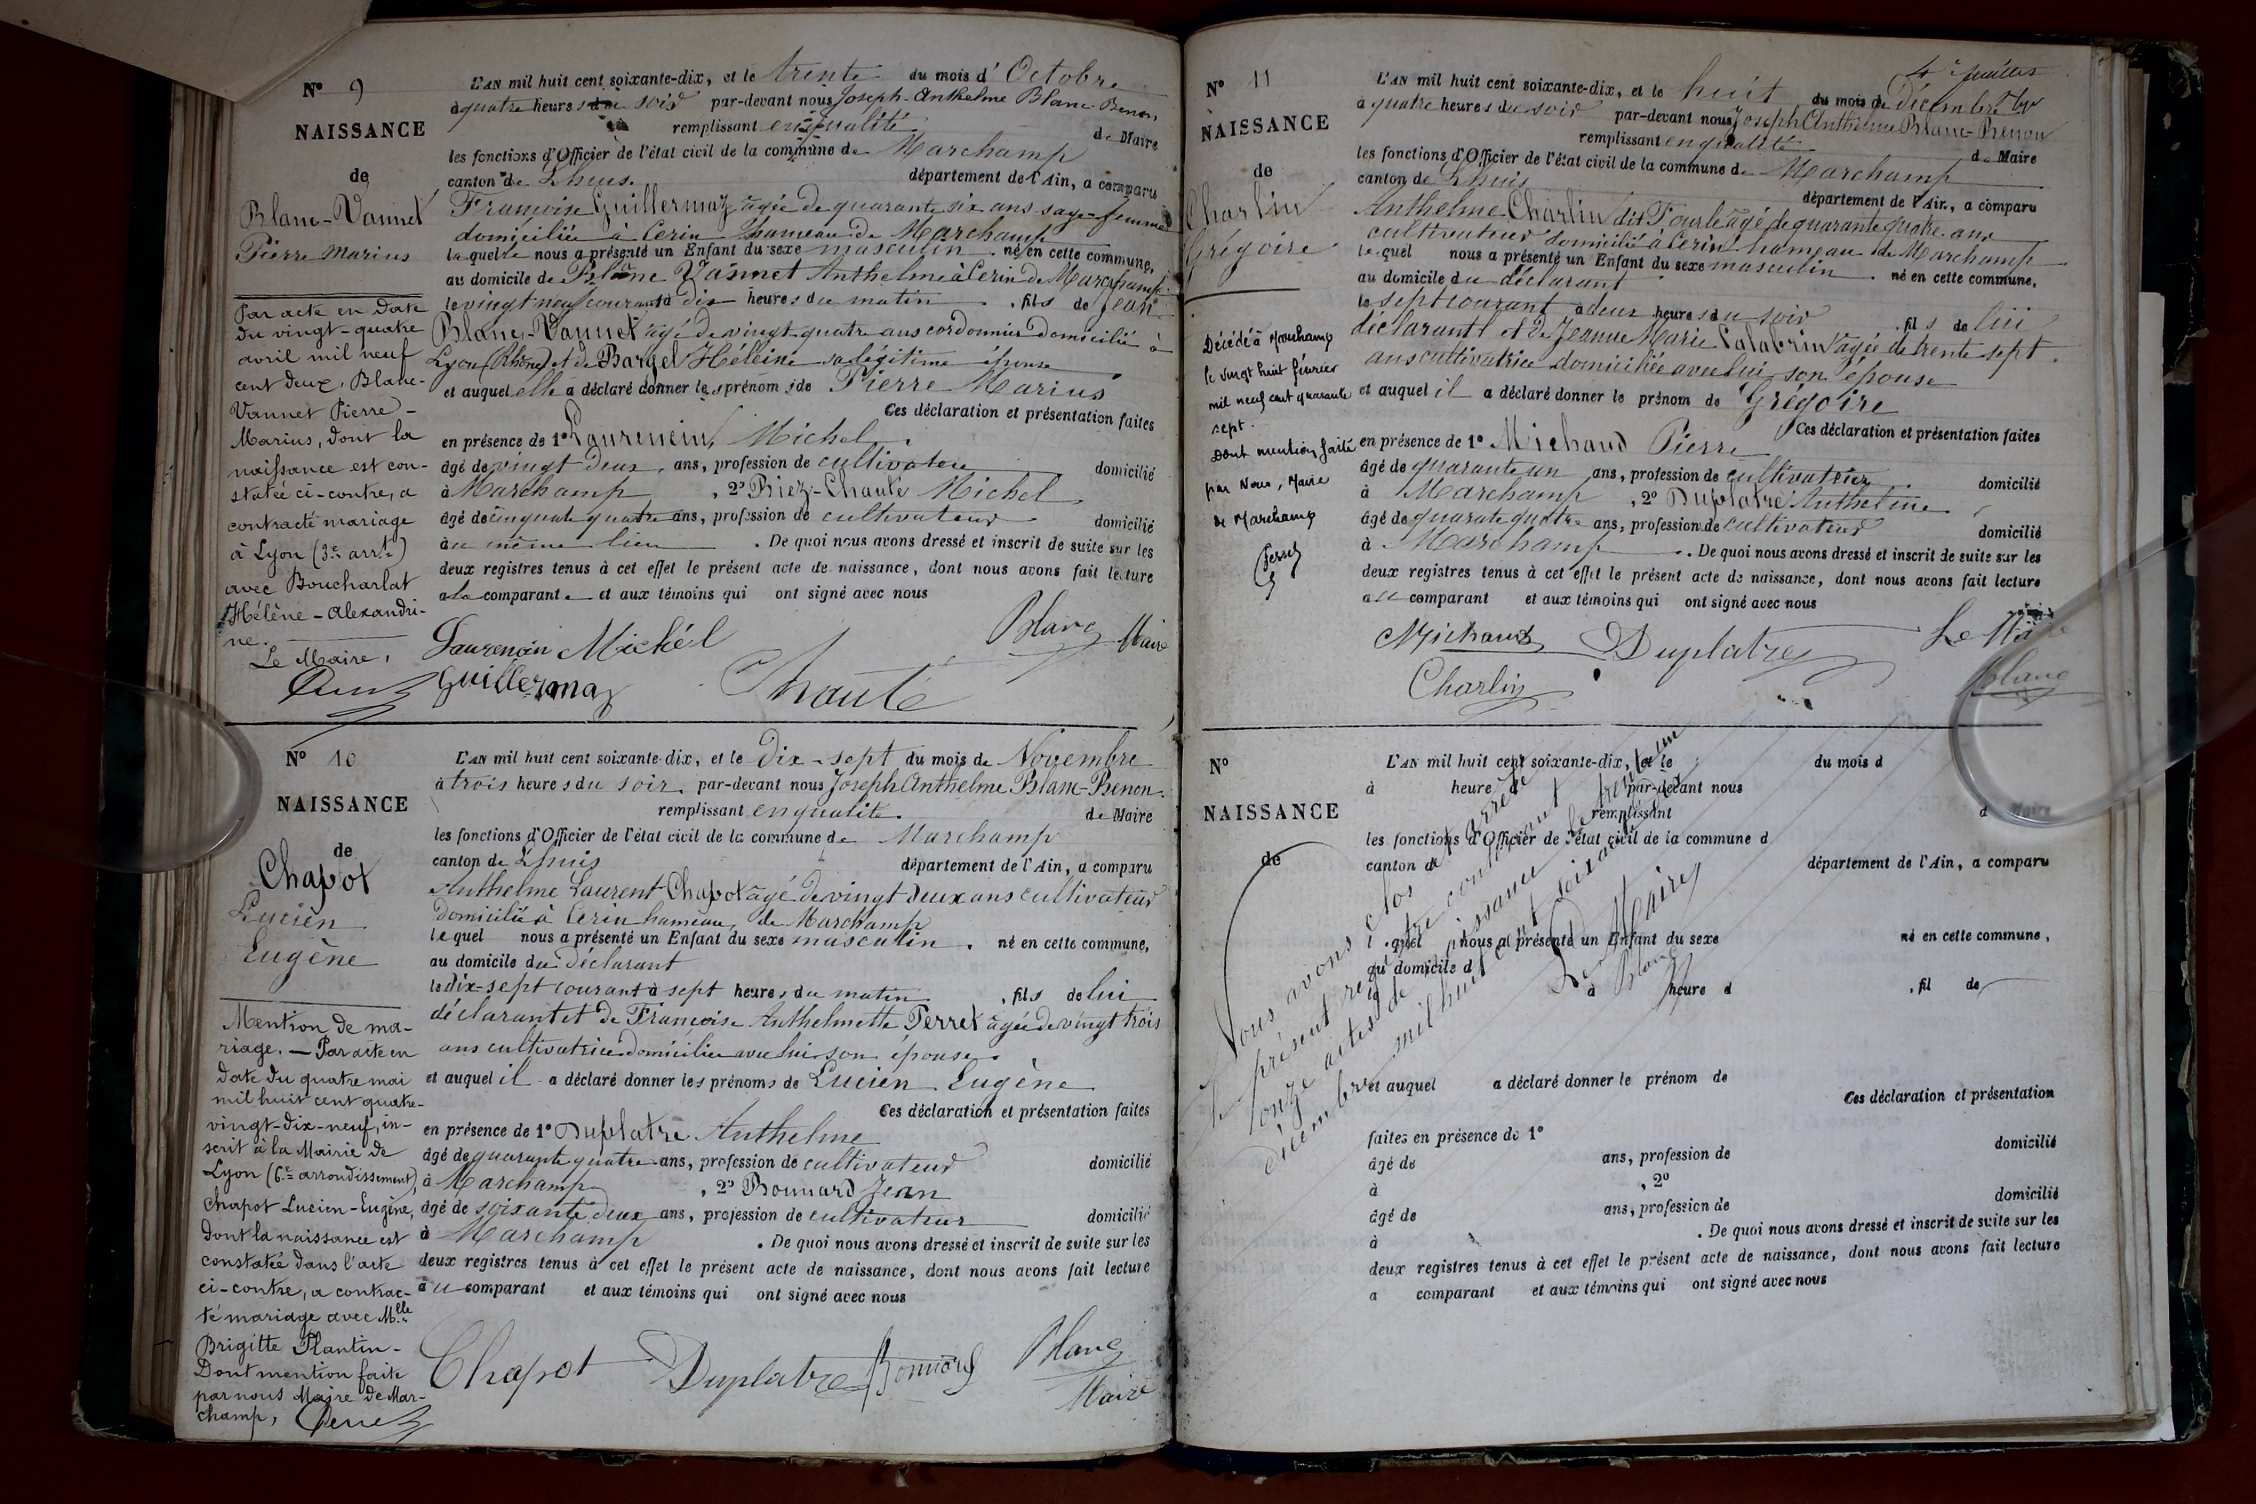 N° 9
NAISSANCE
de
Blanc-Vannet
Pierre Marius
Par acte en date
du vingt-quatre
avril mil neuf
cent deux, Blanc-
Vannet Pierre-
Marius, dont la
naissance est con-
statée ci-contre, a
contracté mariage
à Lyon (3e arrt)
avec Boucharlat
Hélène-Alexandri-
ne.
Le Maire,
L'AN mil huit cent soixante-dix, et le trente du mois d'Octobre
à quatre heures du soir par-devant nous Joseph-Anthelme Blanc-Benon
remplissant en qualité de Maire
les fonctions d'Officier de l'état civil de la commune de Marchamp
canton de Lhuis. département de l'Ain, a comparu
Françoise Guillermaz âgée de quarante six ans sage-femme
domiciliée à Cerin hameau de Marchamp
laquelle nous a présenté un Enfant du sexe masculin né en cette commune,
au domicile de Blanc Vannet Anthelme à Cerin de Marchamp
le vingt neuf courant à dix heures du matin, fils de Jean
Blanc-Vannet âgé de vingt quatre ans cordonnier domicilié à
Lyon (Rhône) et de Bargel Héleine sa légitime épouse
et auquel elle a déclaré donner les prénoms de Pierre Marius
Ces déclaration et présentation faites
en présence de 1° Laurencin Michel
âgé de vingt deux ans, profession de cultivateur domicilié
à Marchamp, 2° Briez-Chaute Michel
âgé de cinquante quatre ans, profession de cultivateur domicilié
au même lieu. De quoi nous avons dressé et inscrit de suite sur les
deux registres tenus à cet effet le présent acte de naissance, dont nous avons fait lecture
a la comparante et aux témoins qui ont signé avec nous
Laurencin Michel Blanc Maire
Guillermaz Chaute
N° 10
NAISSANCE
de
Chapot
Lucien
Eugène
Mention de ma-
riage. — Par acte en
date du quatre mai
mil huit cent quatre-
vingt-dix-neuf, in-
scrit à la Mairie de
Lyon (6e arrondissement),
Chapot Lucien-Eugène,
dont la naissance est
constatée dans l'acte
ci-contre, a contrac-
té mariage avec Mlle
Brigitte Plantin-
Dont mention faite
par nous Maire de Mar-
champ,
L'AN mil huit cent soixante-dix, et le dix-sept du mois de Novembre
à trois heures du soir par-devant nous Joseph Anthelme Blanc-Benon
remplissant en qualité de Maire
les fonctions d'Officier de l'état civil de la commune de Marchamp
canton de Lhuis département de l'Ain, a comparu
Anthelme Laurent Chapot âgé de vingt deux ans cultivateur
domicilié à Cerin hameau de Marchamp
lequel nous a présenté un Enfant du sexe masculin. né en cette commune,
au domicile du déclarant
le dix-sept courant à sept heures du matin, fils de lui
déclarant et de Françoise Anthelmette Perret âgée de vingt trois
ans cultivatrice domiciliée avec lui son épouse
et auquel il a déclaré donner les prénoms de Lucien Eugène
Ces déclaration et présentation faites
en présence de 1° Duplatre Anthelme
âgé de quarante quatre ans, profession de cultivateur domicilié
à Marchamp, 2° Bonnard Jean
âgé de soixante deux ans, profession de cultivateur domicilié
à Marchamp. De quoi nous avons dressé et inscrit de suite sur les
deux registres tenus à cet effet le présent acte de naissance, dont nous avons fait lecture
au comparant et aux témoins qui ont signé avec nous
Chapot Duplatre Bonnard Blanc
Maire
N° 11
NAISSANCE
de
Charlin
Grégoire
Décédé à Marchamp
le vingt huit février
mil neuf cent quarante
sept.
Dont mention faite
par Nous, Maire
de Marchamp
4e feuillet
L'AN mil huit cent soixante-dix, et le huit du mois de décembre
à quatre heures du soir par-devant nous Joseph Anthelme Blanc-Benon
remplissant en qualité de Maire
les fonctions d'Officier de l'état civil de la commune de Marchamp
canton de Lhuis département de l'Ain, a comparu
Anthelme Charlin dit âgé de quarante quatre ans
cultivateur domicilié à Cerin hameau de Marchamp
lequel nous a présenté un Enfant du sexe masculin né en cette commune,
au domicile du déclarant
le sept courant à deux heures du soir, fils de lui
déclarant et de Jeanne Marie âgée de trente sept
ans cultivatrice domiciliée avec lui son épouse
et auquel il a déclaré donner le prénom de Grégoire
Ces déclaration et présentation faites
en présence de 1° Michaud Pierre
âgé de quarante un ans, profession de cultivateur domicilié
à Marchamp, 2° Duplatre Anthelme
âgé de quarante quatre ans, profession de cultivateur domicilié
à Marchamp. De quoi nous avons dressé et inscrit de suite sur les
deux registres tenus à cet effet le présent acte de naissance, dont nous avons fait lecture
au comparant et aux témoins qui ont signé avec nous
Michaud Duplatre Le Maire
Charlin Blanc
N°
NAISSANCE
de
L'AN mil huit cent soixante-dix, et le du mois d
à heure d par-devant nous
remplissant d Maire
les fonctions d'Officier de l'état civil de la commune d
canton d département de l'Ain, a comparu
l quel nous a présenté un Enfant du sexe né en cette commune,
au domicile d
l à heure d, fil de
et auquel a déclaré donner le prénom de
Ces déclaration et présentation
faites en présence de 1°
âgé de ans, profession de domicilié
à, 2°
âgé de ans, profession de domicilié
à. De quoi nous avons dressé et inscrit de suite sur les
deux registres tenus à cet effet le présent acte de naissance, dont nous avons fait lecture
a comparant et aux témoins qui ont signé avec nous
Nous avons clos et arrêté
le présent registre contenant
onze actes de naissance le trente un
décembre mil huit cent soixante dix
Le Maire
Blanc